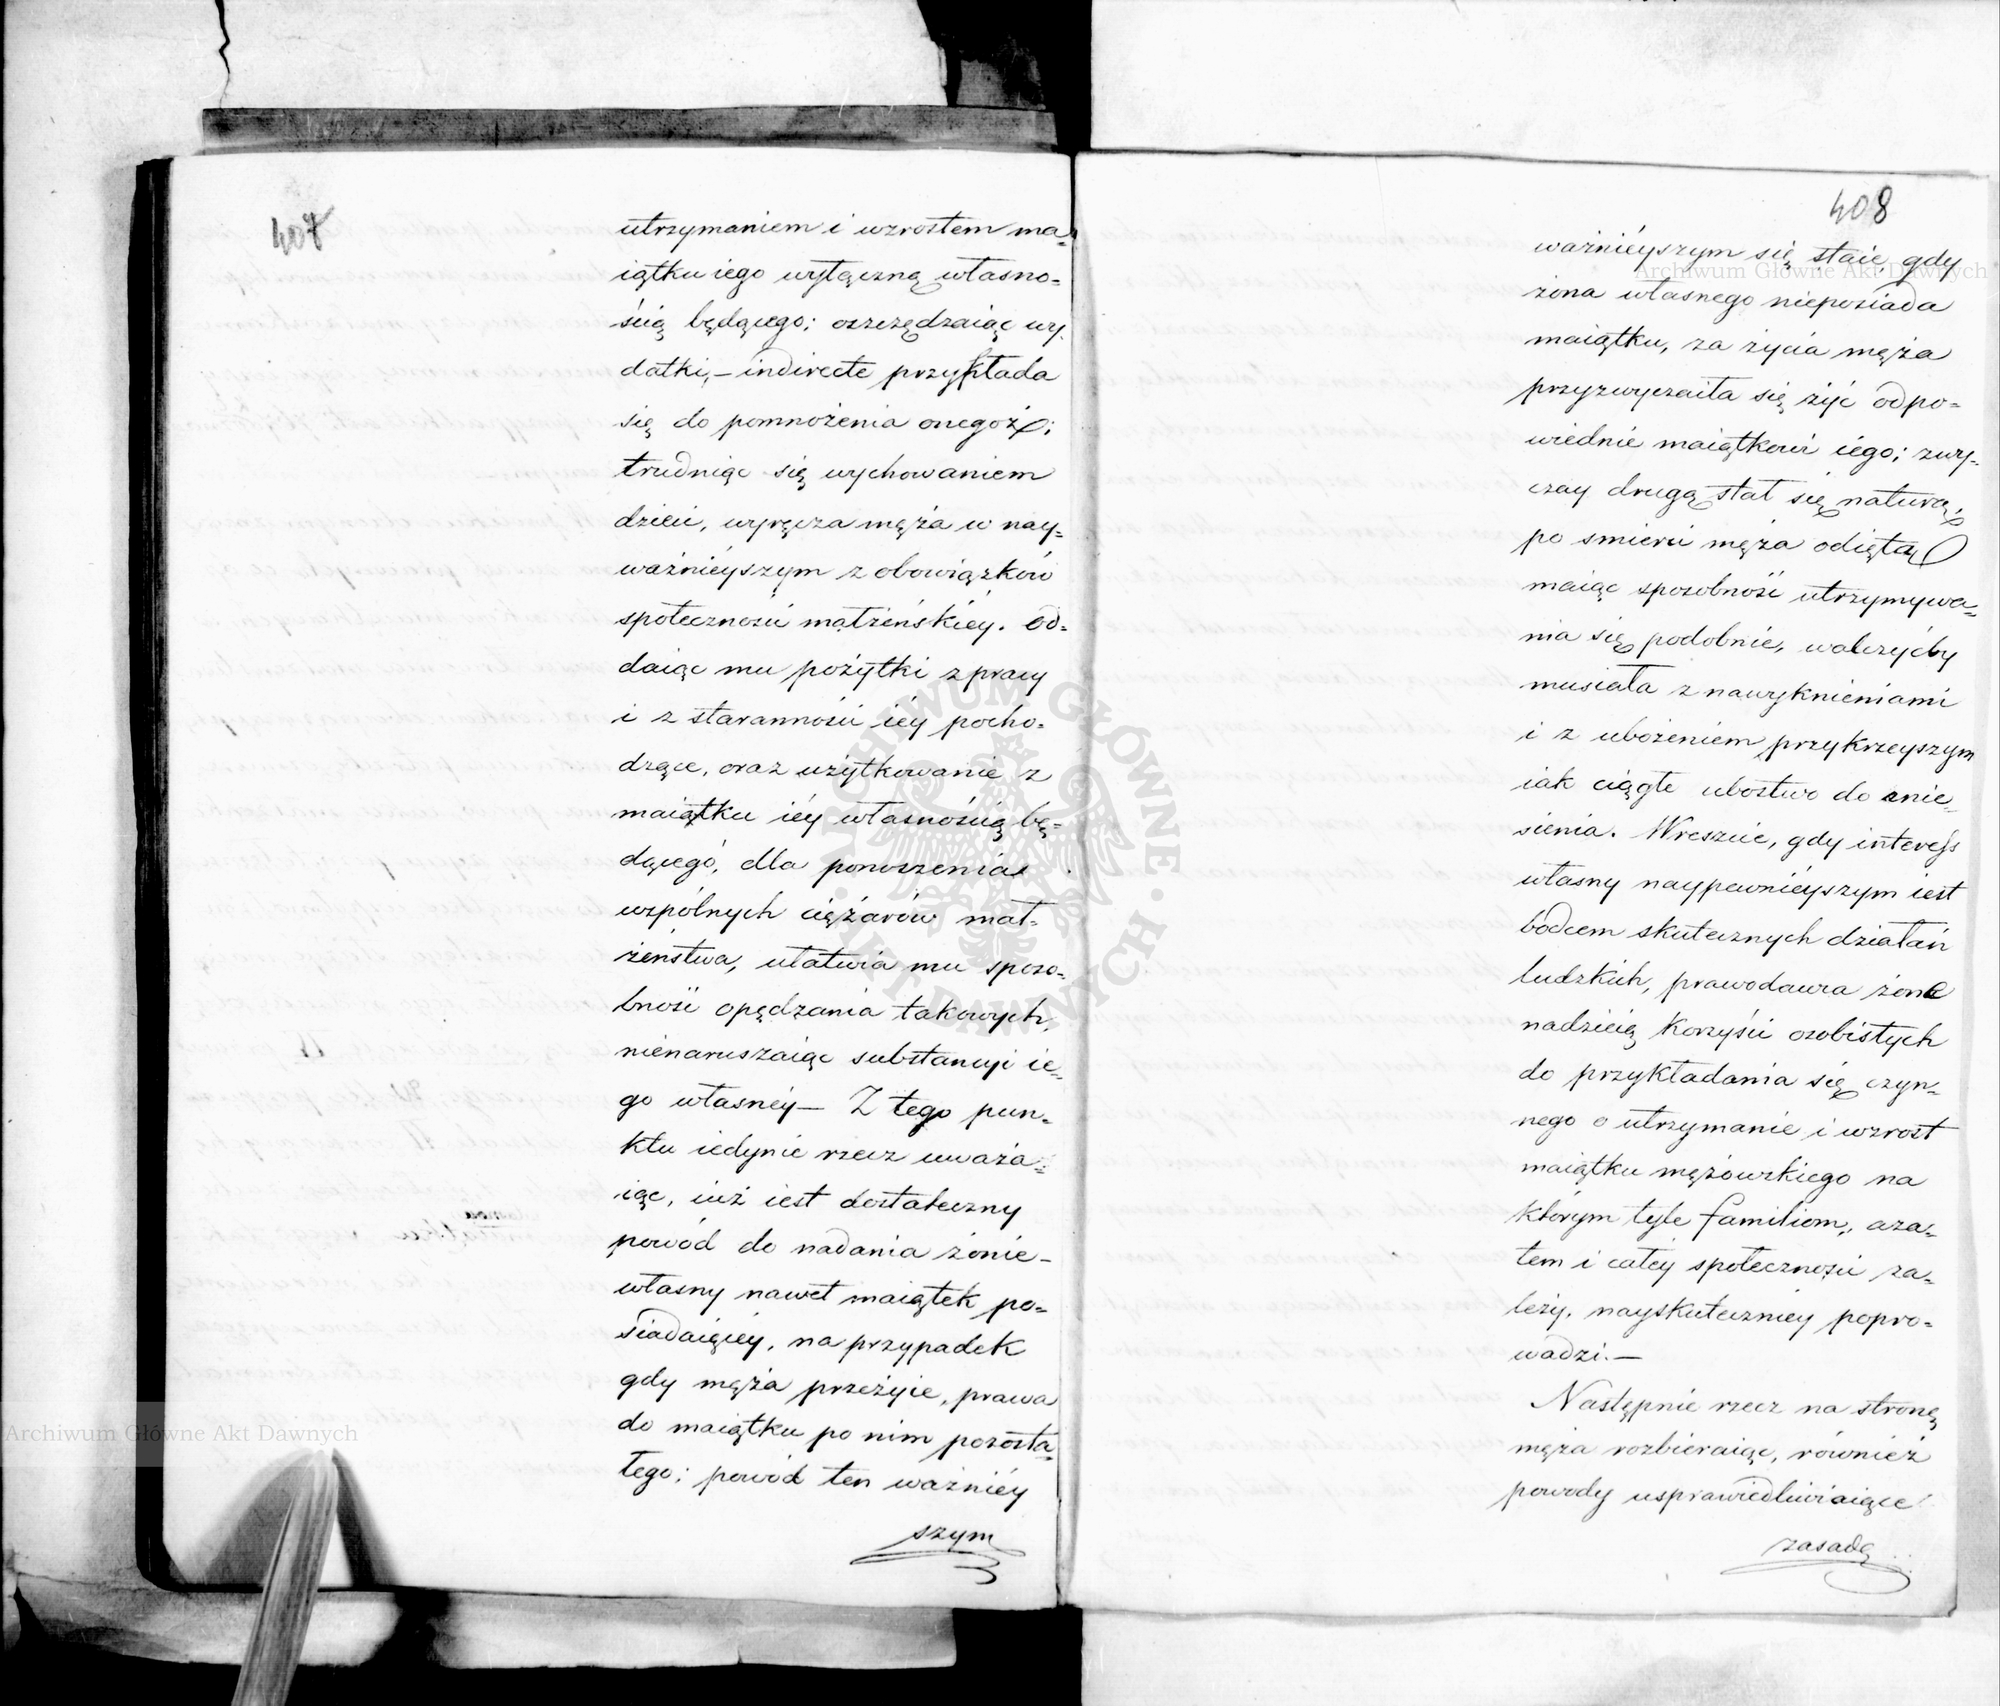 407
utrzymaniem i wzrostem ma=
iątku iego wyłączną własno=
ścią będącego; oszczędzaiąc wy=
datki, – indirecte przykłada
się do pomnożenia onegoż;
trudniąc się wychowaniem
dzieci, wyręcza męża w nay=
ważnieyszym z obowiązków
społeczności małżeńskiéy. Od=
daiąc mu pożytki z pracy
i z staranności iéy pocho=
dzące, oraz użytkowanie z
maiątku iéy własnością bę=
dącego, dla ponoszenia
wspólnych ciężarów mał=
żeństwa, ułatwia mu sposo=
bność opędzania takowych,
nienaruszaiąc substancyi ie=
go własnéy – Z tego pun=
ktu iedynie rzecz uważa=
iąc, iuż iest dostateczny
powód do nadania żonie –
własny nawet maiątek po=
siadaiącéy, na przypadek
gdy męża przeżyie, prawa
do maiątku po nim pozosta=
łego; powód ten ważniéy
szym
408
ważniéyszym się staie, gdy
żona własnego nieposiada
maiątku, za życia męża
przyzwyczaiła się żyć odpo=
wiednie maiątkowi iego; zwy=
czay drugą stał się naturą,
po smierci męża odiętą
maiąc sposobność utrzymywa=
nia się podobnie, walczyćby
musiała z nawyknieniami
i z ubożeniem przykrzeyszym
iak ciągłe ubostwo do znie=
sienia. Wreszcie, gdy interess
własny naypewniéyszym iest
bodcem skutecznych działań
ludzkich, prawodawca żonę
nadzieią korzyści osobistych
do przykładania się czyn=
nego o utrzymanie i wzrost
maiątku mężowskiego na
którym tyle familiom, aza=
tem i całéy społeczności za=
leży, nayskuteczniey popro=
wadzi. –
Następnie rzecz na stronę
męża rozbieraiąc, również
powody usprawiedliwiaiące
zasadę
Archiwum Główne Akt Dawnych
Archiwum Główne Akt Dawnych
ARCHIWUM GŁÓWNE AKT DAWNYCH